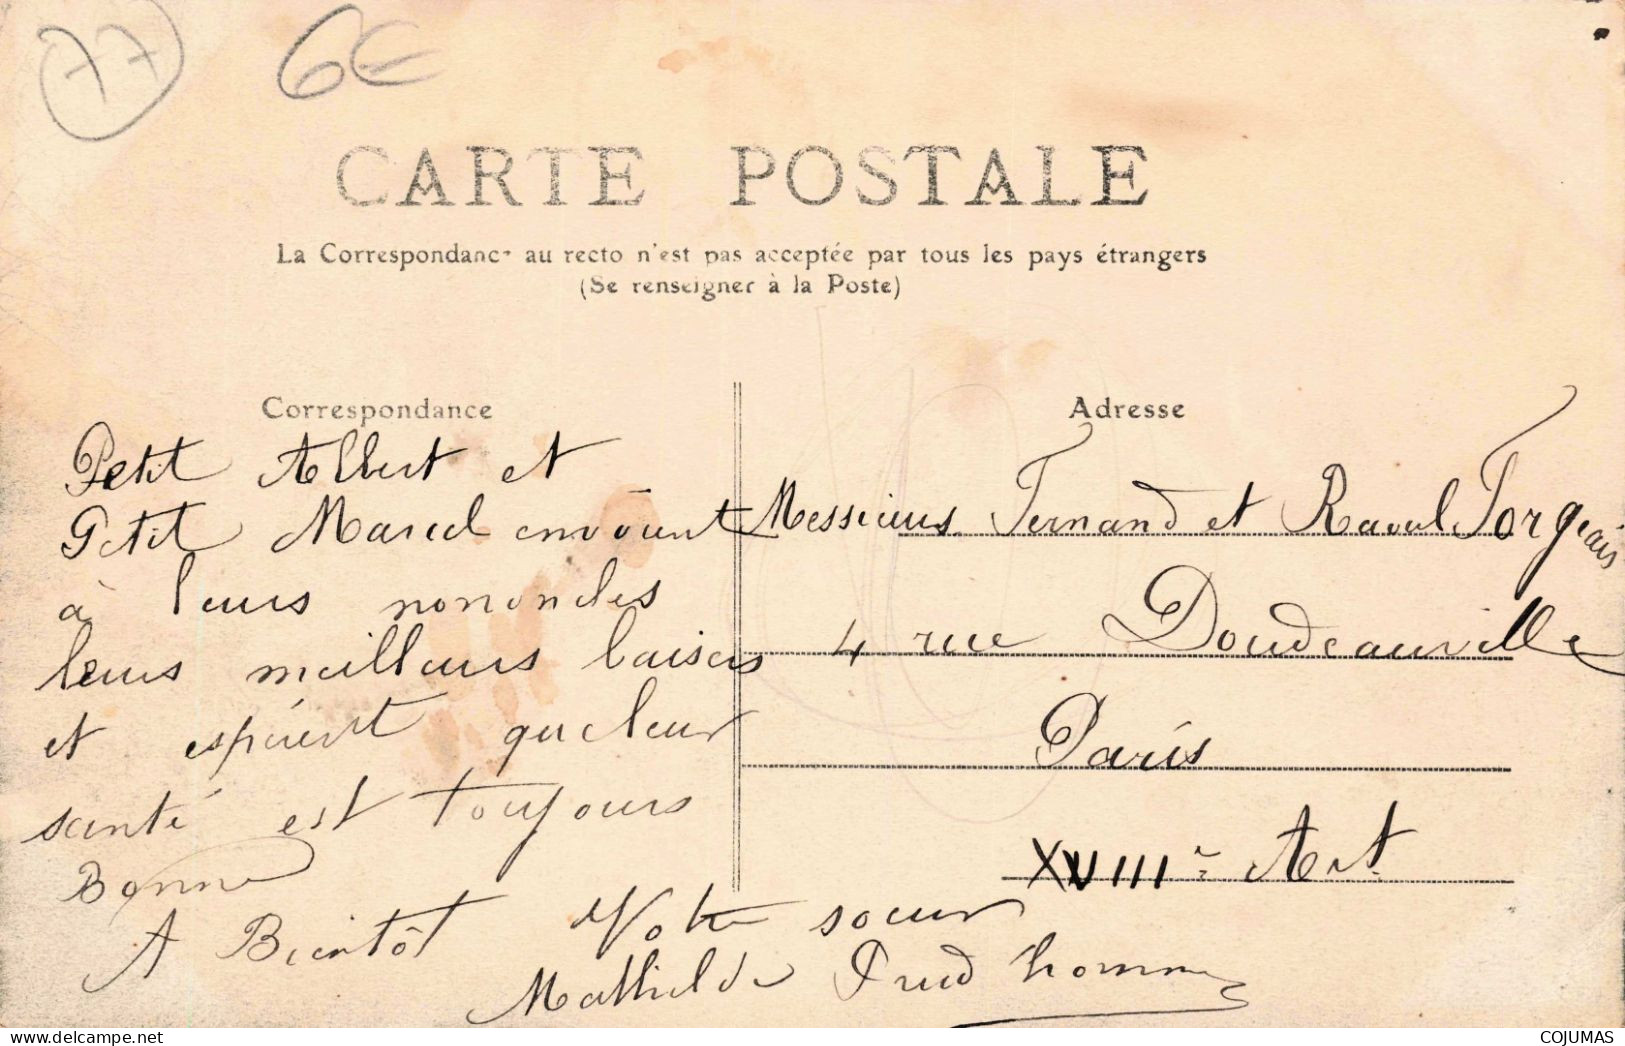 77
6€
CARTE POSTALE
La Correspondance au recto n'est pas acceptée par tous les pays étrangers
(Se renseigner à la Poste)
Correspondance
Petit Albert et
Petit Marcel envoient
à leurs nononcles
leurs meilleurs baisers
et espèrent que leur
santé est toujours
Bonne
A Bientôt Votre soeur
Mathilde Prud homme
Adresse
Messieurs Fernand et Raoul Forgeais
4 rue Doudeauville
Paris
XVIIIe Art.
COJUMAS